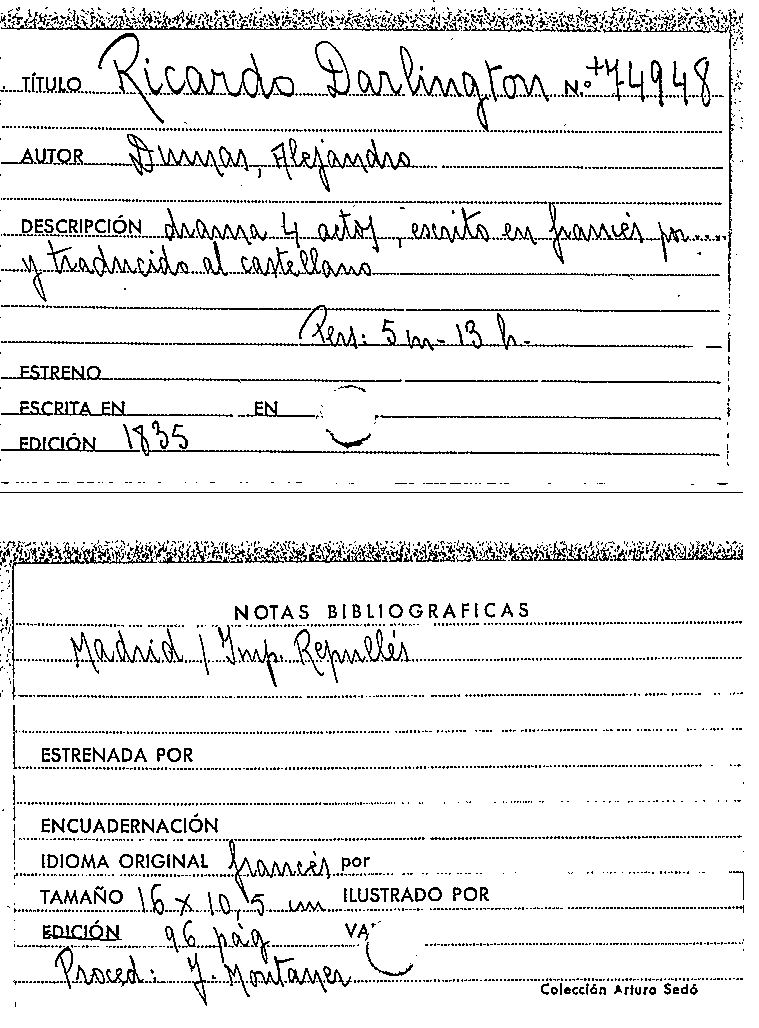 TÍTULO Ricardo Darlington N.º 74948
AUTOR Dumas, Alejandro
DESCRIPCIÓN drama 4 actos, escrito en francés por....
y traducido al castellano
Pers: 5 m - 13 h.
ESTRENO
ESCRITA EN EN
EDICIÓN 1835
NOTAS BIBLIOGRAFICAS
Madrid / Imp. Repullés
ESTRENADA POR
ENCUADERNACIÓN
IDIOMA ORIGINAL francés por
TAMAÑO 16 x 10,5 cm ILUSTRADO POR
EDICIÓN 96 pág
Proced: J. Montaner
Colección Arturo Sedó